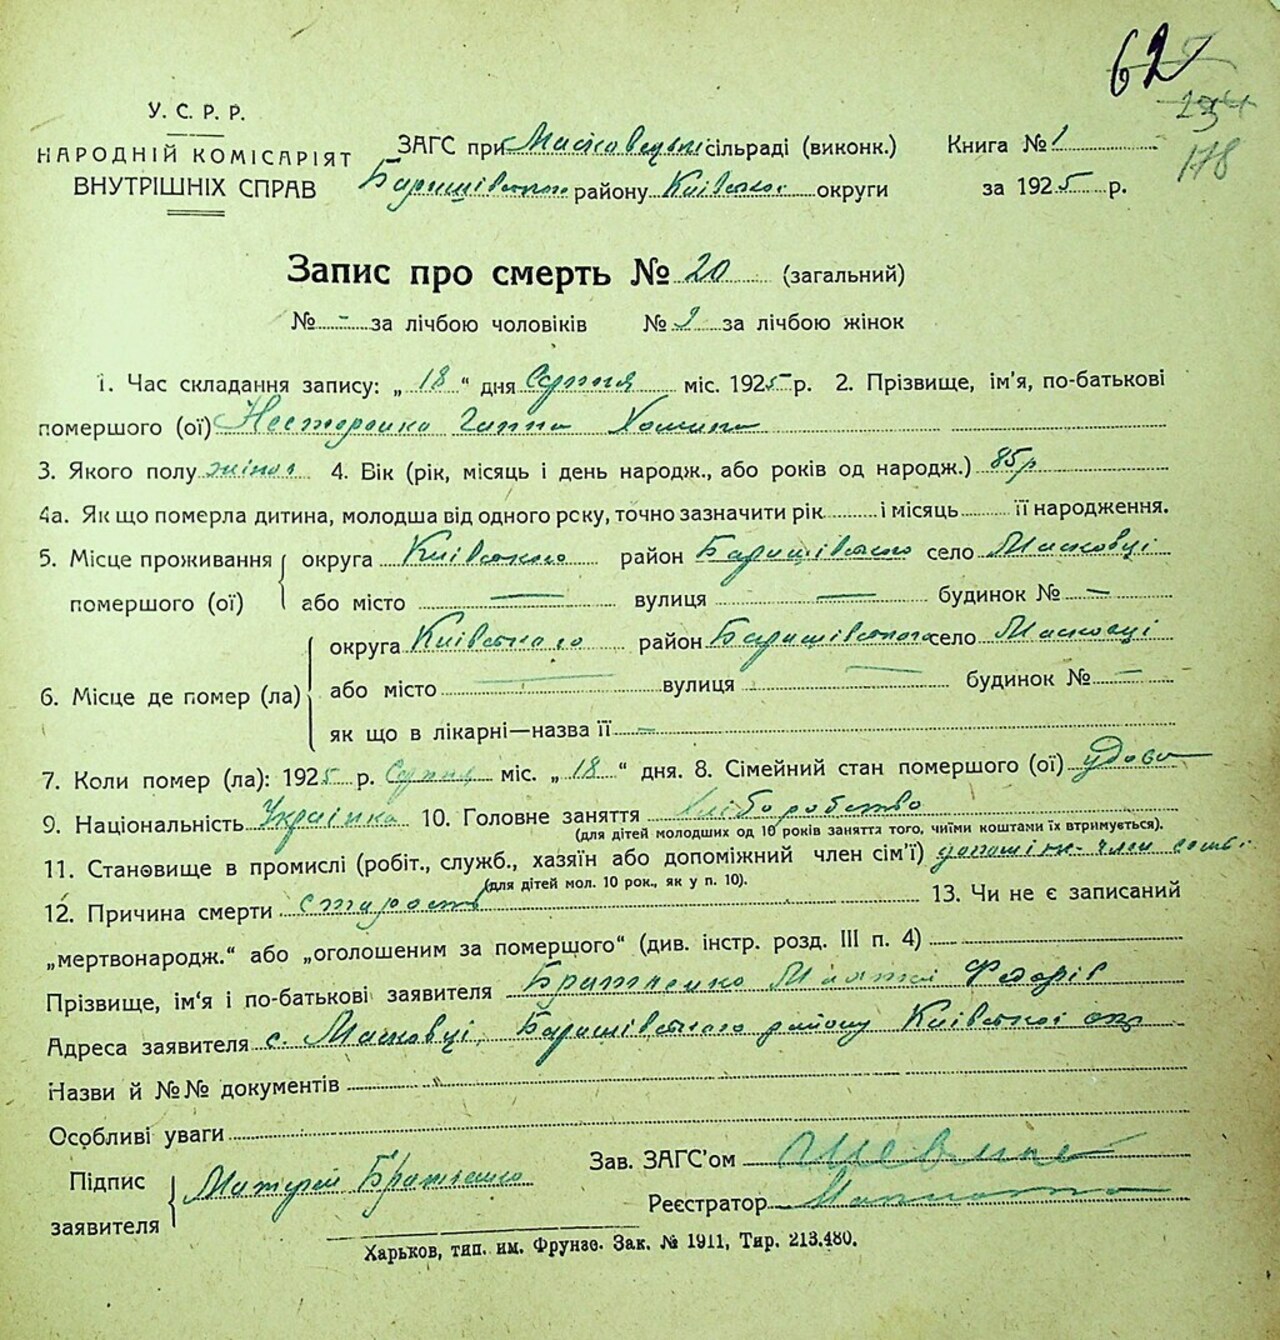 62
178
У. С. Р. Р.
НАРОДНІЙ КОМІСАРІЯТ
ВНУТРІШНІХ СПРАВ
ЗАГС при сільраді (виконк.)
Баришівського району Київської округи
Книга № 1
за 1925 р.
Запис про смерть № 20 (загальний)
№ - за лічбою чоловіків № 9 за лічбою жінок
1. Час складання запису: „ 18 “ дня Серпня міс. 1925 р. 2. Прізвище, ім'я, по-батькові
помершого (ої) Несторенко Ганна Хомина
3. Якого полу жіноч 4. Вік (рік, місяць і день народж., або років од народж.) 85р
4а. Як що померла дитина, молодша від одного року, точно зазначити рік і місяць її народження.
5. Місце проживання
помершого (ої)
округа Київського район Баришівського село Масковці
або місто — вулиця — будинок № —
6. Місце де помер (ла)
округа Київського район Баришівського село Масковці
або місто — вулиця — будинок № —
як що в лікарні—назва її —
7. Коли помер (ла): 1925 р. Серпня міс. „ 18 “ дня. 8. Сімейний стан помершого (ої) удова
9. Національність Українка 10. Головне заняття Хліборобство
(для дітей молодших од 10 років заняття того, чиїми коштами їх втримується).
11. Становище в промислі (робіт., служб., хазяїн або допоміжний член сім'ї) допоміжн. член
(для дітей мол. 10 рок., як у п. 10).
12. Причина смерти старость 13. Чи не є записаний
„мертвонародж.“ або „оголошеним за помершого“ (див. інстр. розд. III п. 4)
Прізвище, ім'я і по-батькові заявителя Братченко Федорів
Адреса заявителя с. Масковці, Баришівського району Київської окр
Назви й №№ документів
Особливі уваги
Підпис
заявителя
Братченко
Зав. ЗАГС'ом
Реєстратор
Харьков, тип. им. Фрунзе. Зак. № 1911, Тир. 213.480.